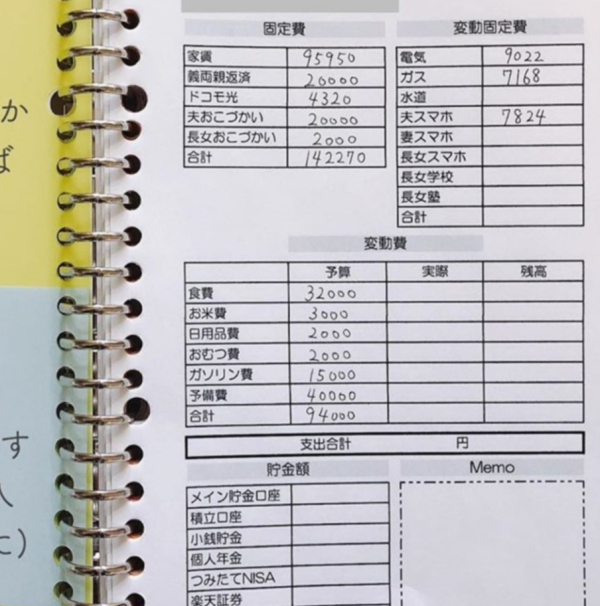 固定費
家賃 95950
義両親返済 20000
ドコモ光 4320
夫おこづかい 20000
長女おこづかい 2000
合計 142270
変動固定費
電気 9022
ガス 7168
水道
夫スマホ 7824
妻スマホ
長女スマホ
長女学校
長女塾
合計
変動費
予算 実際 残高
食費 32000
お米費 3000
日用品費 2000
おむつ費 2000
ガソリン費 15000
予備費 40000
合計 94000
支出合計 円
貯金額
メイン貯金口座
積立口座
小銭貯金
個人年金
つみたてNISA
楽天証券
Memo
か
ば
す
に)